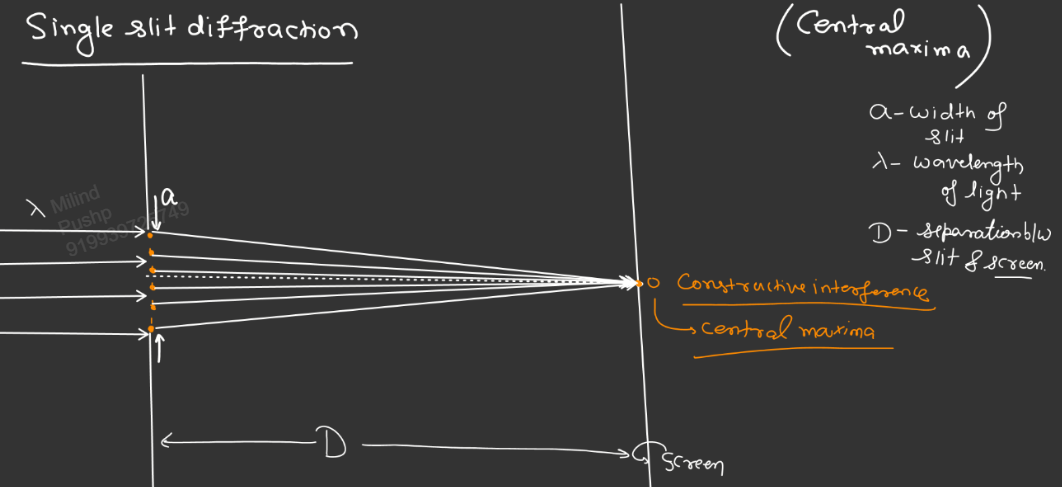 Single slit diffraction
(Central
maxima)
a - width of
slit
λ - wavelength
of light
D - separation b/w
slit & screen.
λ
a
Milind
Pushp
O Constructive interference
→ Central maxima
D
screen